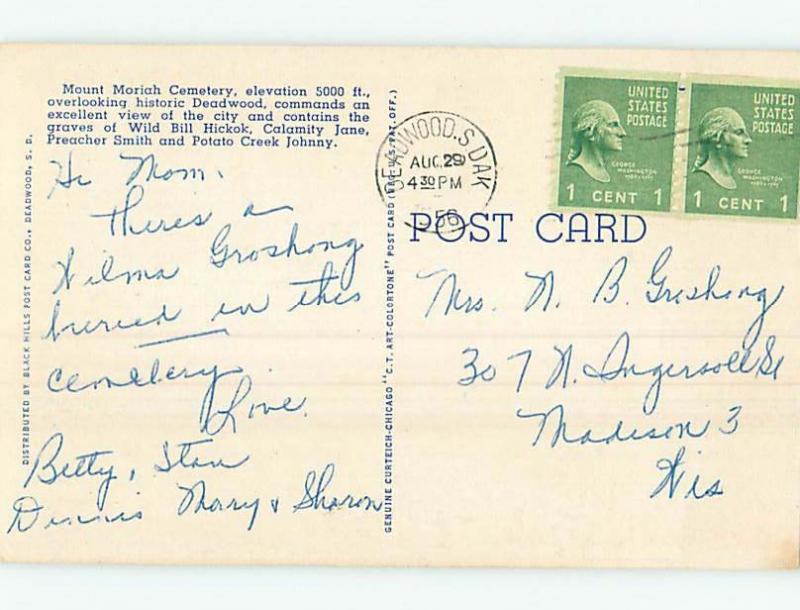 Mount Moriah Cemetery, elevation 5000 ft.,
overlooking historic Deadwood, commands an
excellent view of the city and contains the
graves of Wild Bill Hickok, Calamity Jane,
Preacher Smith and Potato Creek Johnny.
Hi Mom.
There's a
Wilma Groshong
buried in this
cemetery.
Love.
Betty, Stan
Dennis Mary & Sharon
DISTRIBUTED BY BLACK HILLS POST CARD CO., DEADWOOD, S. D.
GENUINE CURTEICH-CHICAGO "C.T. ART-COLORTONE" POST CARD (REG. U.S. PAT. OFF.)
DEADWOOD. S DAK
AUG. 29
4 30 PM
56
UNITED
STATES
POSTAGE
GEORGE
WASHINGTON
1 CENT 1
UNITED
STATES
POSTAGE
GEORGE
WASHINGTON
1 CENT 1
POST CARD
Mrs. N. B. Groshong
307 N. Ingersoll St
Madison 3
Wis